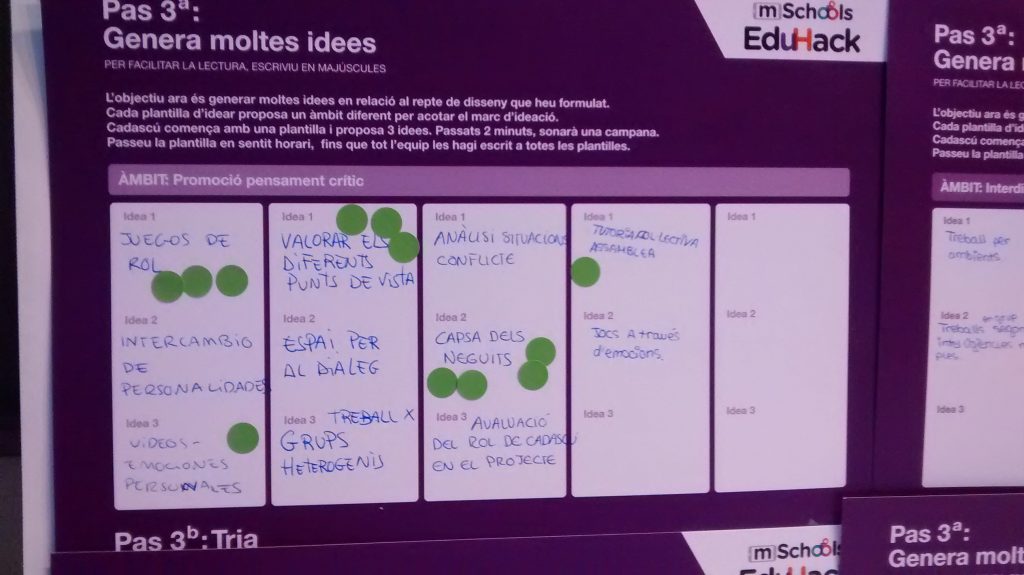 Pas 3ª:
Genera moltes idees
PER FACILITAR LA LECTURA, ESCRIVIU EN MAJÚSCULES
[m]Schools
EduHack
L'objectiu ara és generar moltes idees en relació al repte de disseny que heu formulat.
Cada plantilla d'idear proposa un àmbit diferent per acotar el marc d'ideació.
Cadascú comença amb una plantilla i proposa 3 idees. Passats 2 minuts, sonarà una campana.
Passeu la plantilla en sentit horari, fins que tot l'equip les hagi escrit a totes les plantilles.
ÀMBIT: Promoció pensament crític
Idea 1
JUEGOS DE
ROL
Idea 2
INTERCAMBIO
DE
PERSONALIDADES
Idea 3
VIDEOS-
EMOCIONES
PERSONALES
Idea 1
VALORAR ELS
DIFERENTS
PUNTS DE VISTA
Idea 2
ESPAI PER
AL DIALEG
Idea 3 TREBALL X
GRUPS
HETEROGENIS
Idea 1
ANÀLISI SITUACIONS
CONFLICTE
Idea 2
CAPSA DELS
NEGUITS
Idea 3 AVALUACIÓ
DEL ROL DE CADASCÚ
EN EL PROJECTE
Idea 1
TUTORIA COL·LECTIVA
ASSAMBLEA
Idea 2
Jocs a través
d'emocions.
Idea 3
Idea 1
Idea 2
Idea 3
Pas 3ᵇ: Tria
[m]Schools
EduHack
Pas 3ª:
Genera
PER FACILITAR LA
L'objectiu ara és
Cada plantilla d'
Cadascú comença
Passeu la plantilla
ÀMBIT:
Idea 1
Treball per
ambients.
Idea 2
Treballs
Idea 3
Pas 3ª:
Genera molt